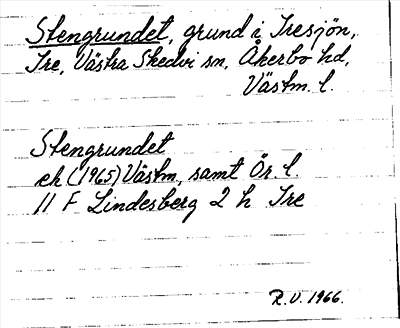 Stengrundet, grund i Tresjön,
Tre, Västra Skedvi sn, Åkerbo hd,
Västm. l.
Stengrundet
ek (1965) Västm., samt Ör. l.
11 F Lindesberg 2 h Tre
R.V. 1966.